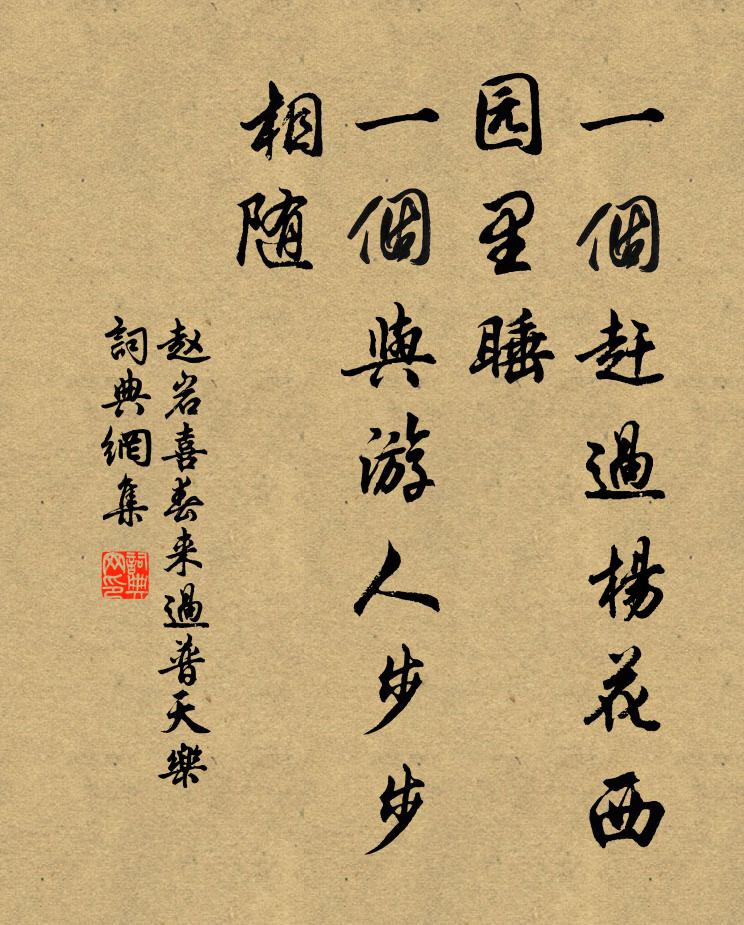 一個赶過楊花西
园里睡
一個與游人步步
相随
赵岩喜春来過普天樂
詞典網集
詞典網印